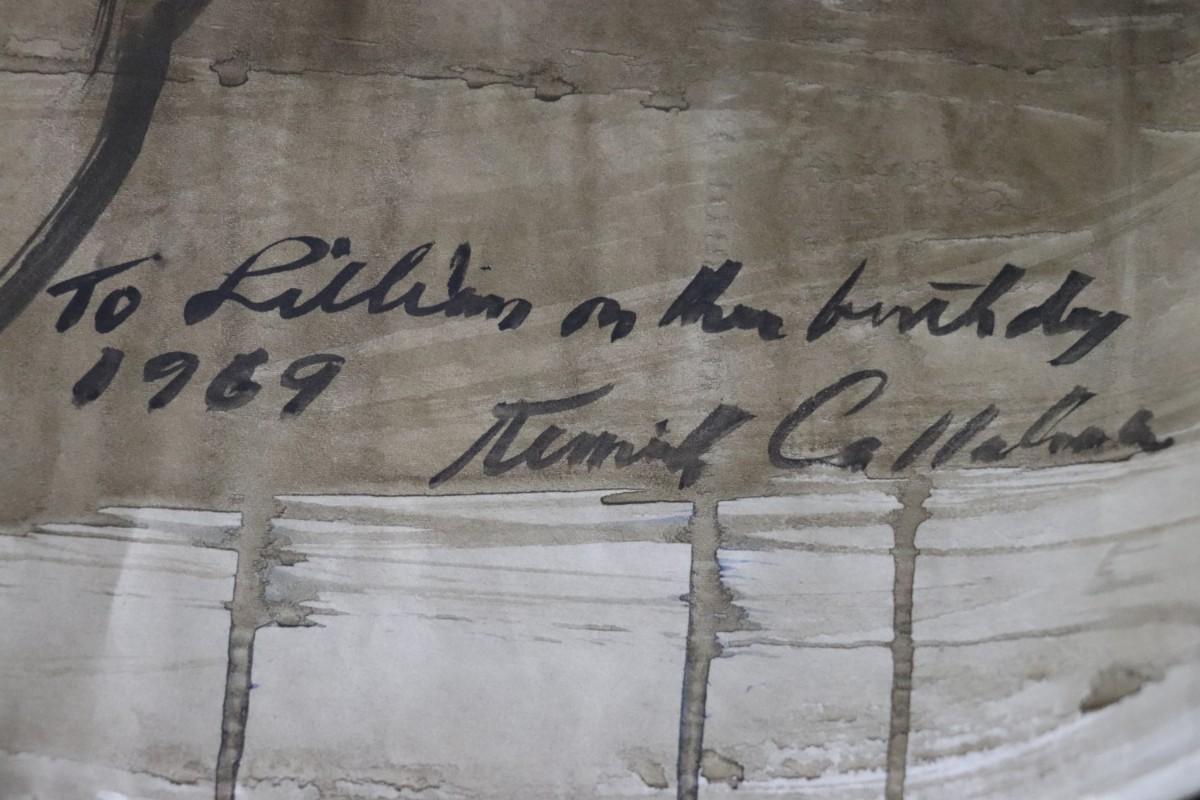 To Lillian on her birthday
1969
Kenneth Callahan